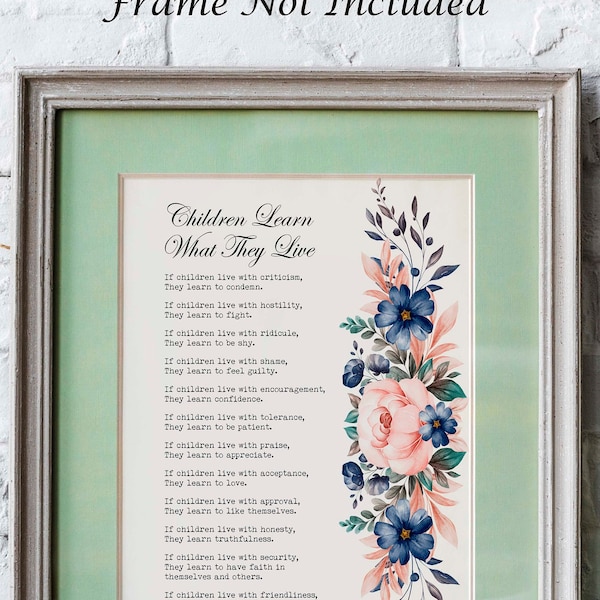 Frame Not Included
Children Learn
What They Live
If children live with criticism,
They learn to condemn.
If children live with hostility,
They learn to fight.
If children live with ridicule,
They learn to be shy.
If children live with shame,
They learn to feel guilty.
If children live with encouragement,
They learn confidence.
If children live with tolerance,
They learn to be patient.
If children live with praise,
They learn to appreciate.
If children live with acceptance,
They learn to love.
If children live with approval,
They learn to like themselves.
If children live with honesty,
They learn truthfulness.
If children live with security,
They learn to have faith in
themselves and others.
If children live with friendliness,